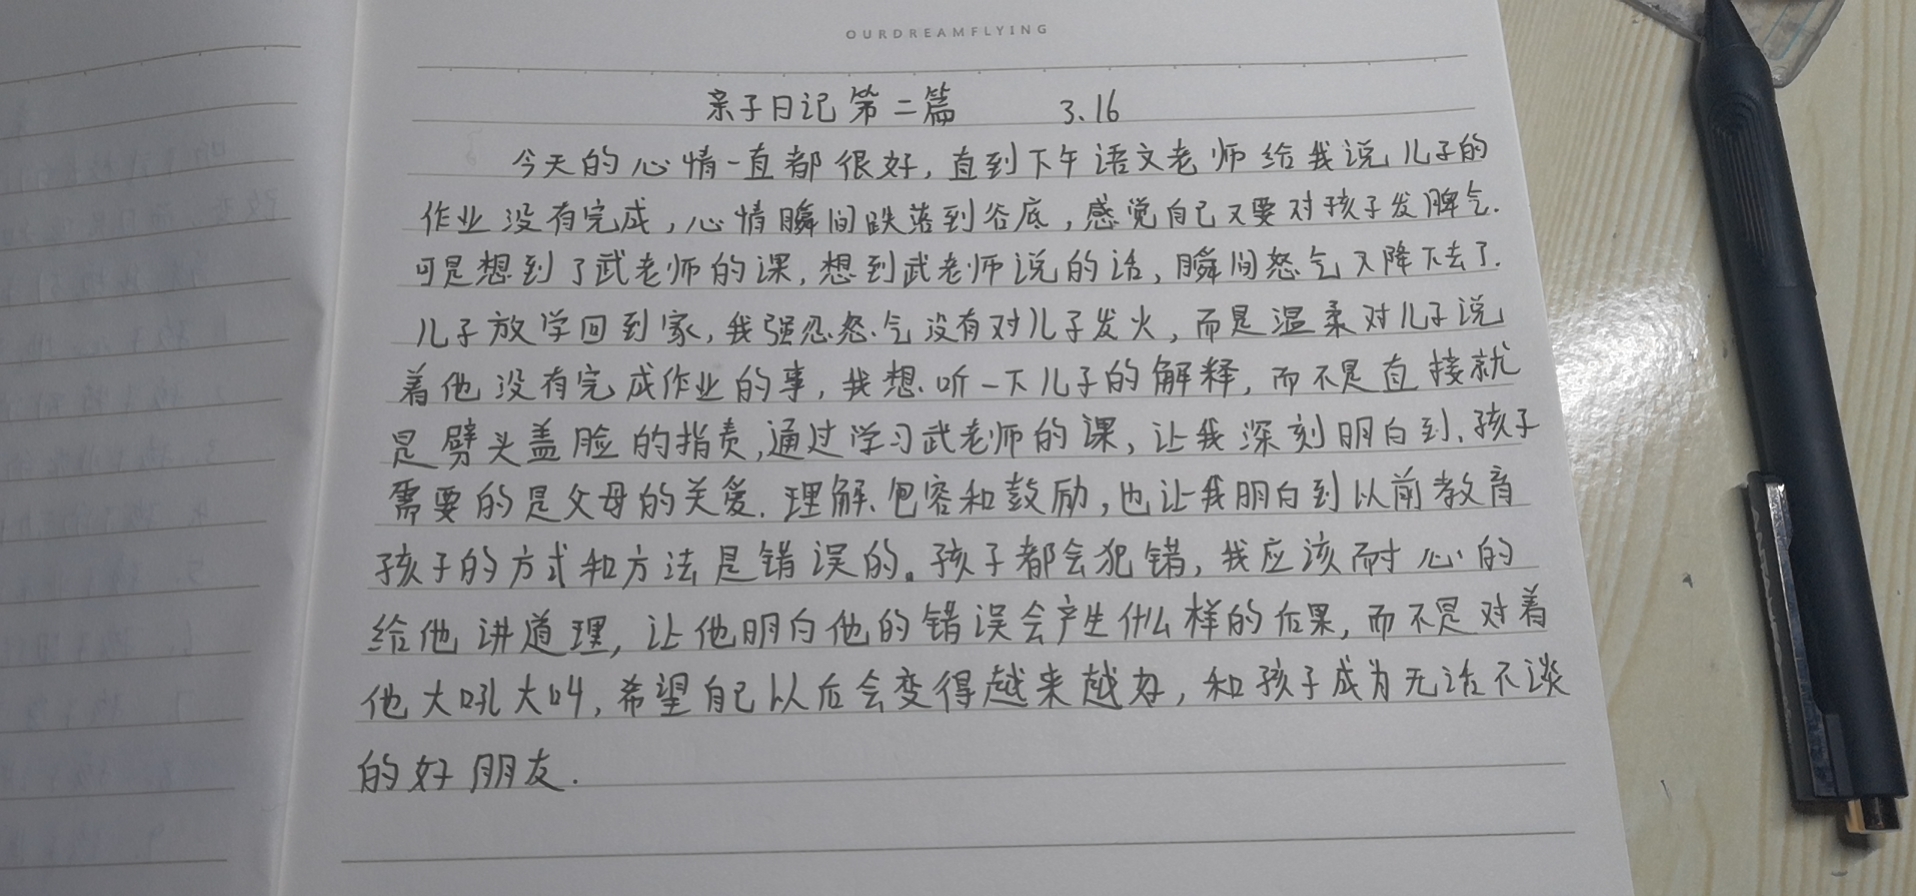 OURDREAMFLYING
亲子日记第二篇 3.16
今天的心情一直都很好,直到下午语文老师给我说儿子的
作业没有完成,心情瞬间跌落到谷底,感觉自己又要对孩子发脾气.
可是想到了武老师的课,想到武老师说的话,瞬间怒气又降下去了.
儿子放学回到家,我强忍怒气没有对儿子发火,而是温柔对儿子说
着他没有完成作业的事,我想听一下儿子的解释,而不是直接就
是劈头盖脸的指责,通过学习武老师的课,让我深刻明白到,孩子
需要的是父母的关爱.理解、包容和鼓励,也让我明白到以前教育
孩子的方式和方法是错误的。孩子都会犯错,我应该耐心的
给他讲道理,让他明白他的错误会产生什么样的后果,而不是对着
他大吼大叫,希望自己以后会变得越来越好,和孩子成为无话不谈
的好朋友.